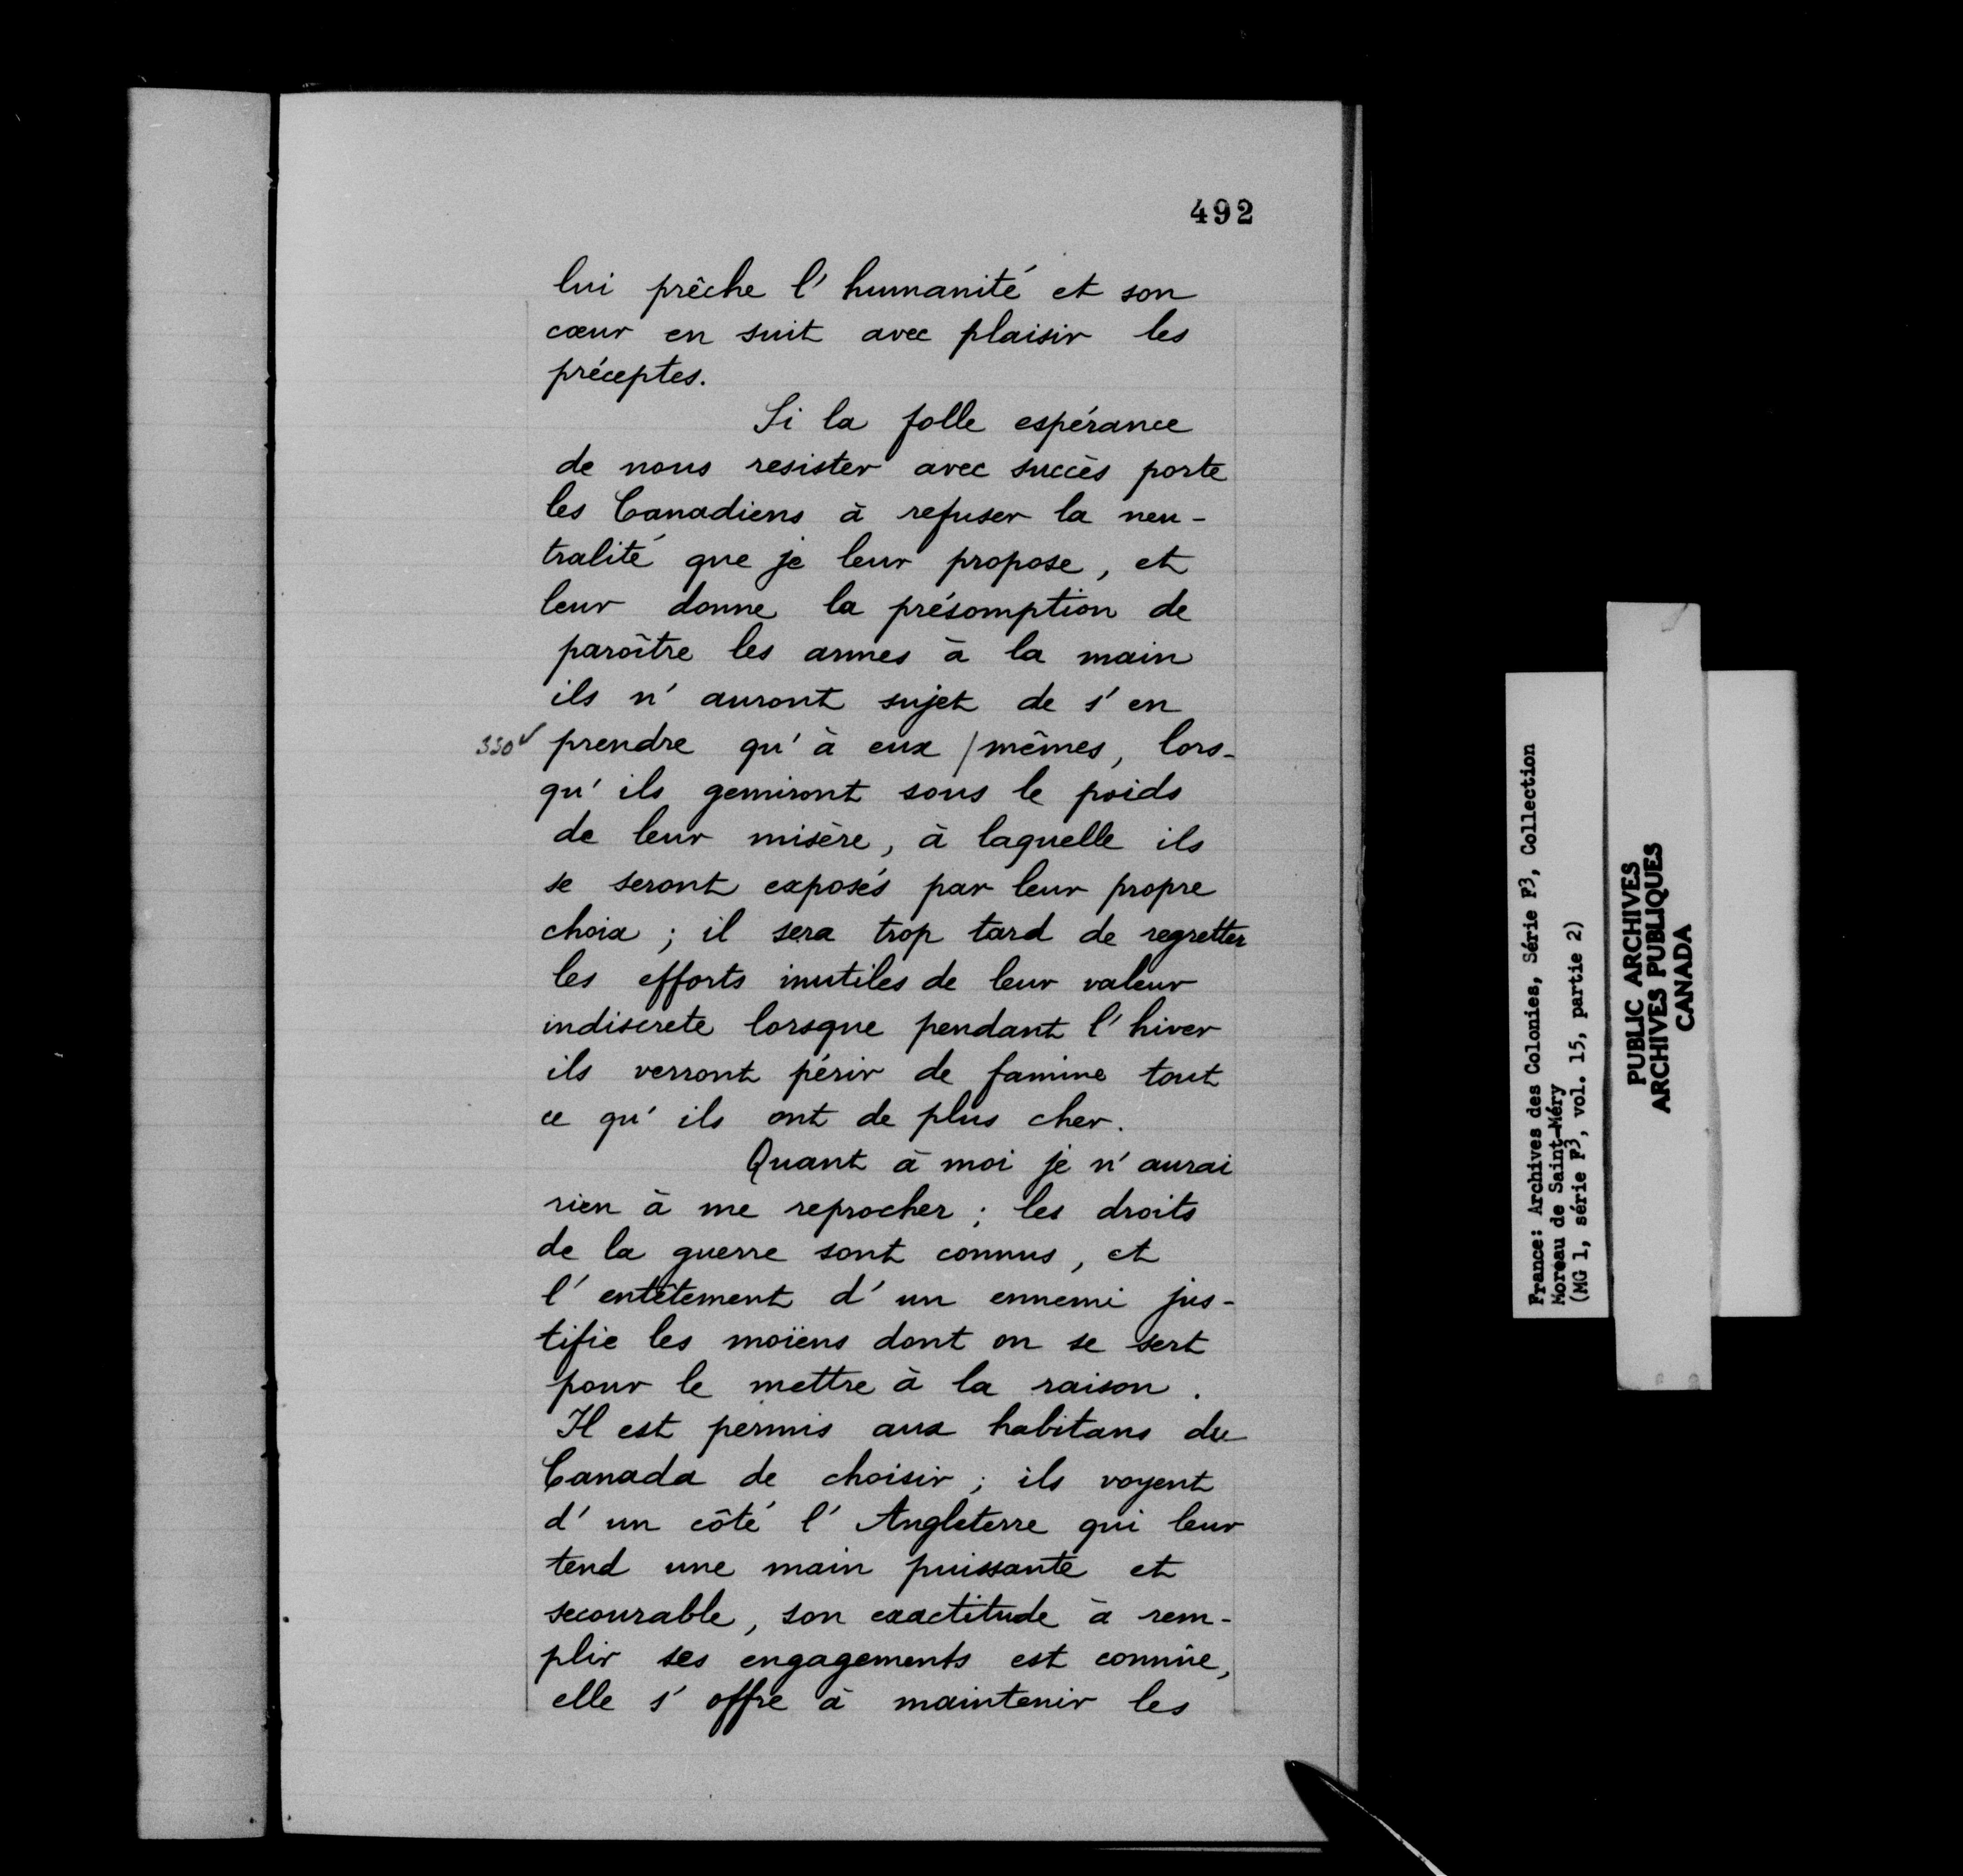 492
lui prêche l'humanité et son
cœur en suit avec plaisir les
préceptes.
Si la folle espérance
de nous resister avec succès porte
les Canadiens à refuser la neu-
tralité que je leur propose, et
leur donne la présomption de
paroître les armes à la main
ils n'auront sujet de s'en
350v prendre qu'à eux / mêmes, lors-
qu'ils gemiront sous le poids
de leur misère, à laquelle ils
se seront exposés par leur propre
choix ; il sera trop tard de regretter
les efforts inutiles de leur valeur
indiscrete lorsque pendant l'hiver
ils verront périr de famine tout
ce qu'ils ont de plus cher.
Quant à moi je n'aurai
rien à me reprocher ; les droits
de la guerre sont connus, et
l'entêtement d'un ennemi jus-
tifie les moïens dont on se sert
pour le mettre à la raison.
Il est permis aux habitans du
Canada de choisir ; ils voyent
d'un côté l'Angleterre qui leur
tend une main puissante et
secourable, son exactitude à rem-
plir ses engagements est connûe,
elle s'offre à maintenir les
France: Archives des Colonies, Série F3, Collection
Moreau de Saint-Méry
(MG 1, série F3, vol. 15, partie 2)
PUBLIC ARCHIVES
ARCHIVES PUBLIQUES
CANADA